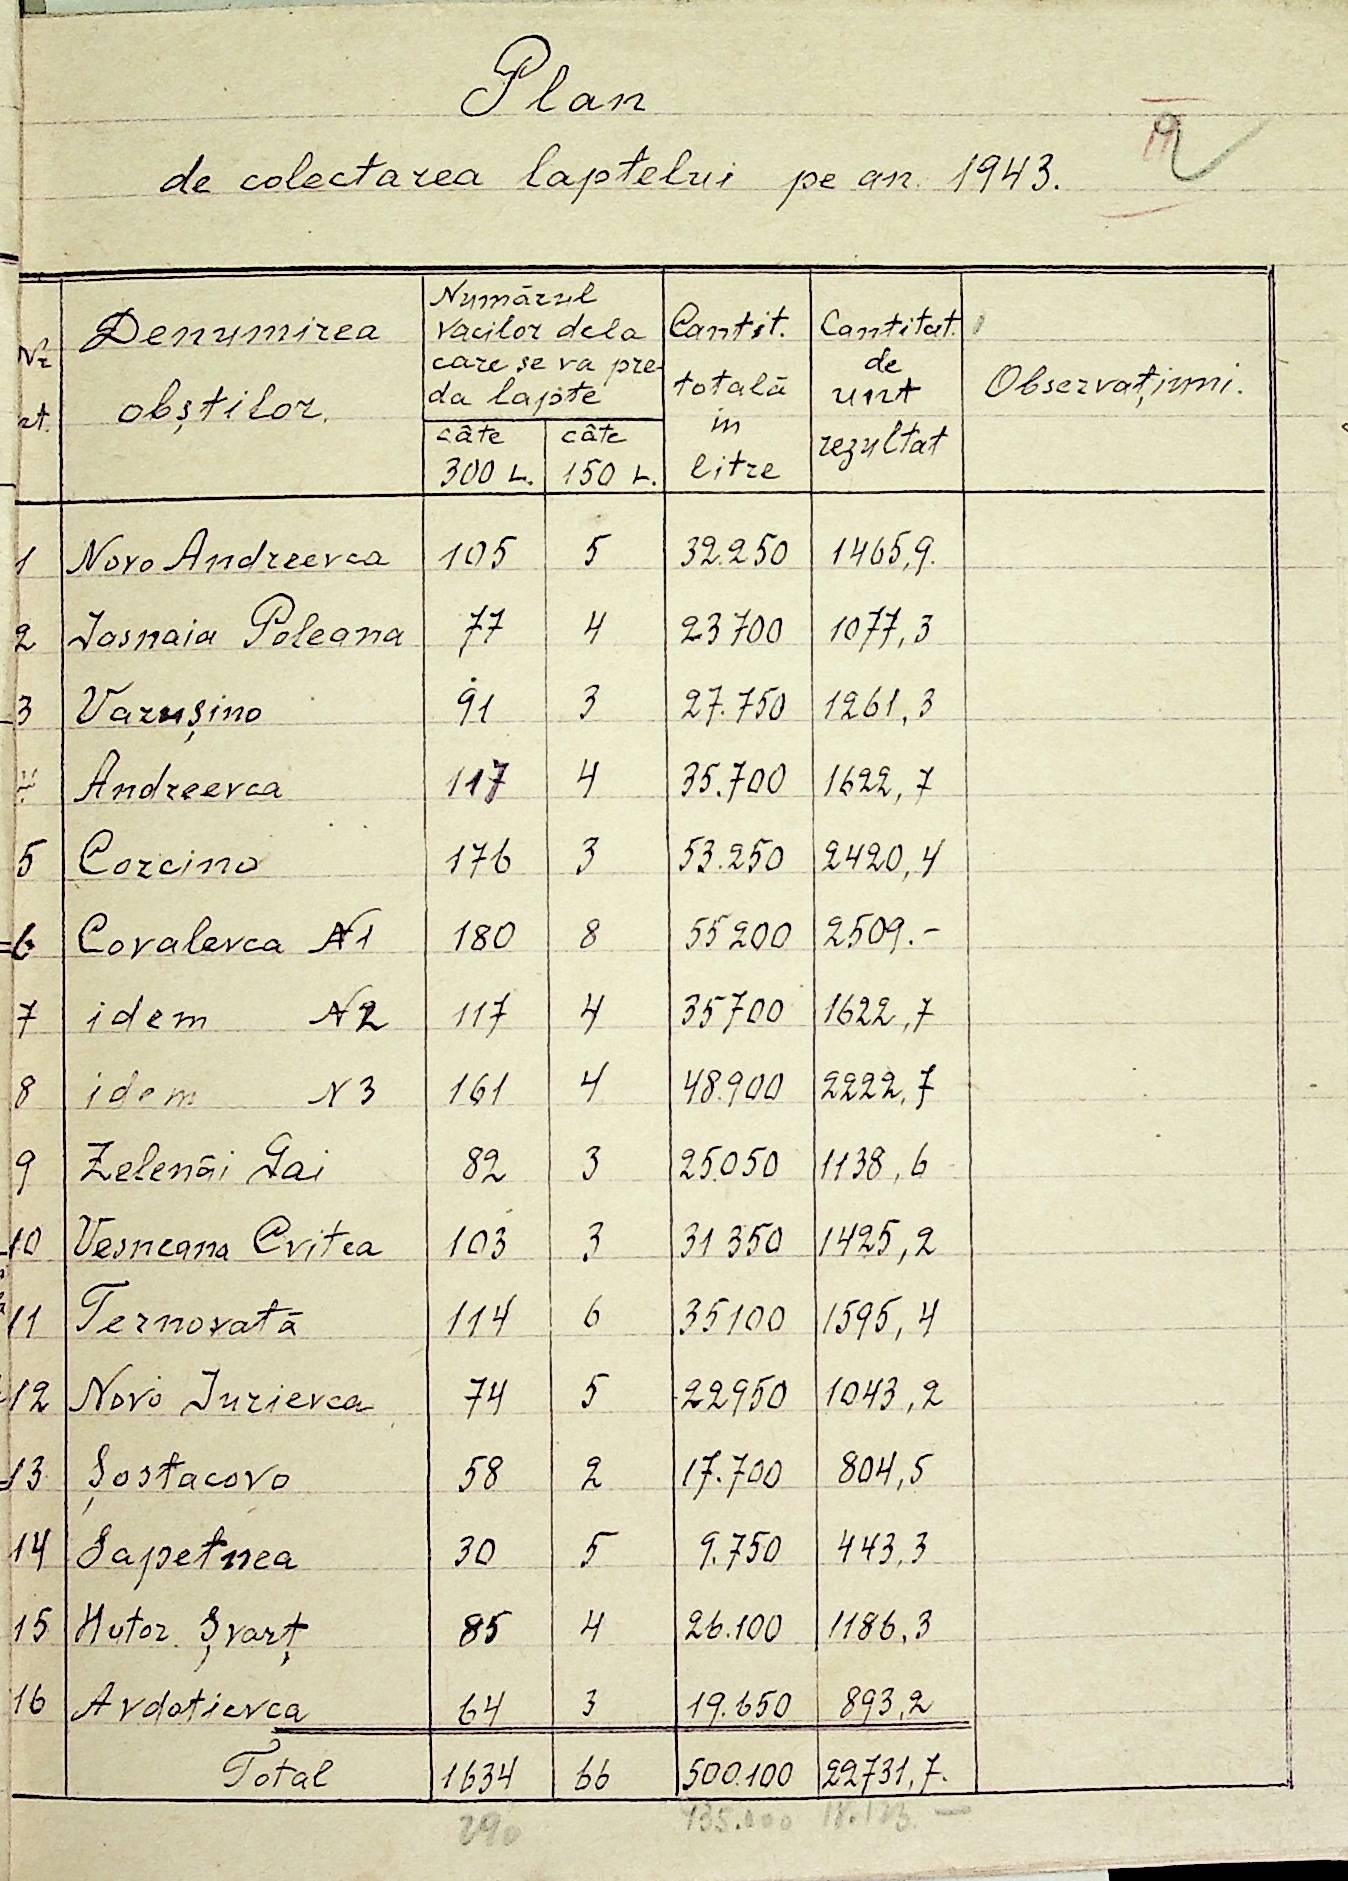 Plan
de colectarea laptelui pe an. 1943.
Nr. Denumirea obștilor. Numărul vacilor dela care se va preda lapte Cantit. totală in litre Cantitat. de unt rezultat Observațiuni.
câte 300 L. câte 150 L.
1 Novo Andreevca 105 5 32.250 1465,9.
2 Iasnaia Poleana 77 4 23700 1077,3
3 Varușino 91 3 27.750 1261,3
4 Andreevca 117 4 35.700 1622,7
5 Corcino 176 3 53.250 2420,4
6 Covalevca N1 180 8 55200 2509.-
7 idem N2 117 4 35700 1622,7
8 idem N3 161 4 48.900 2222,7
9 Zelenâi Gai 82 3 25.050 1138,6
10 Vesneana Cvitca 103 3 31350 1425,2
11 Ternovată 114 6 35100 1595,4
12 Novo Iurievca 74 5 22950 1043,2
13 Șostacovo 58 2 17.700 804,5
14 Sapetnea 30 5 9.750 443,3
15 Hutor. Șvarț 85 4 26.100 1186,3
16 Avdotievca 64 3 19.650 893,2
Total 1634 66 500.100 22731,7.